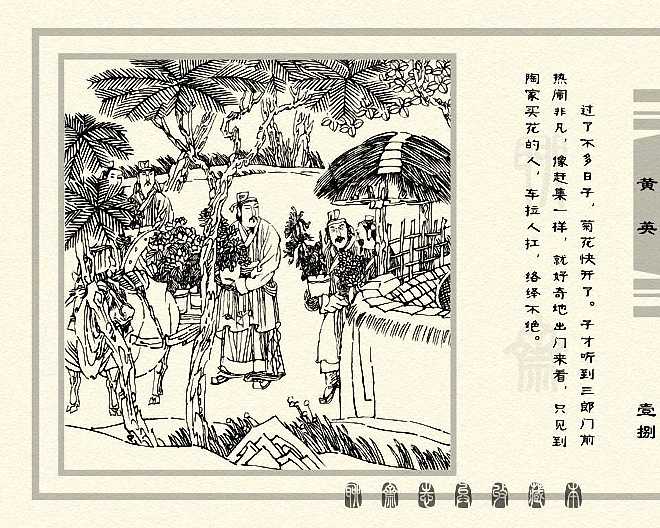 过了不多日子，菊花快开了。子才听到三郎门前
热闹非凡，像赶集一样，就好奇地出门来看，只见到
陶家买花的人，车拉人扛，络绎不绝。
黄英
壹捌